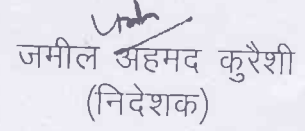 जमील अहमद कुरैशी
(निदेशक)